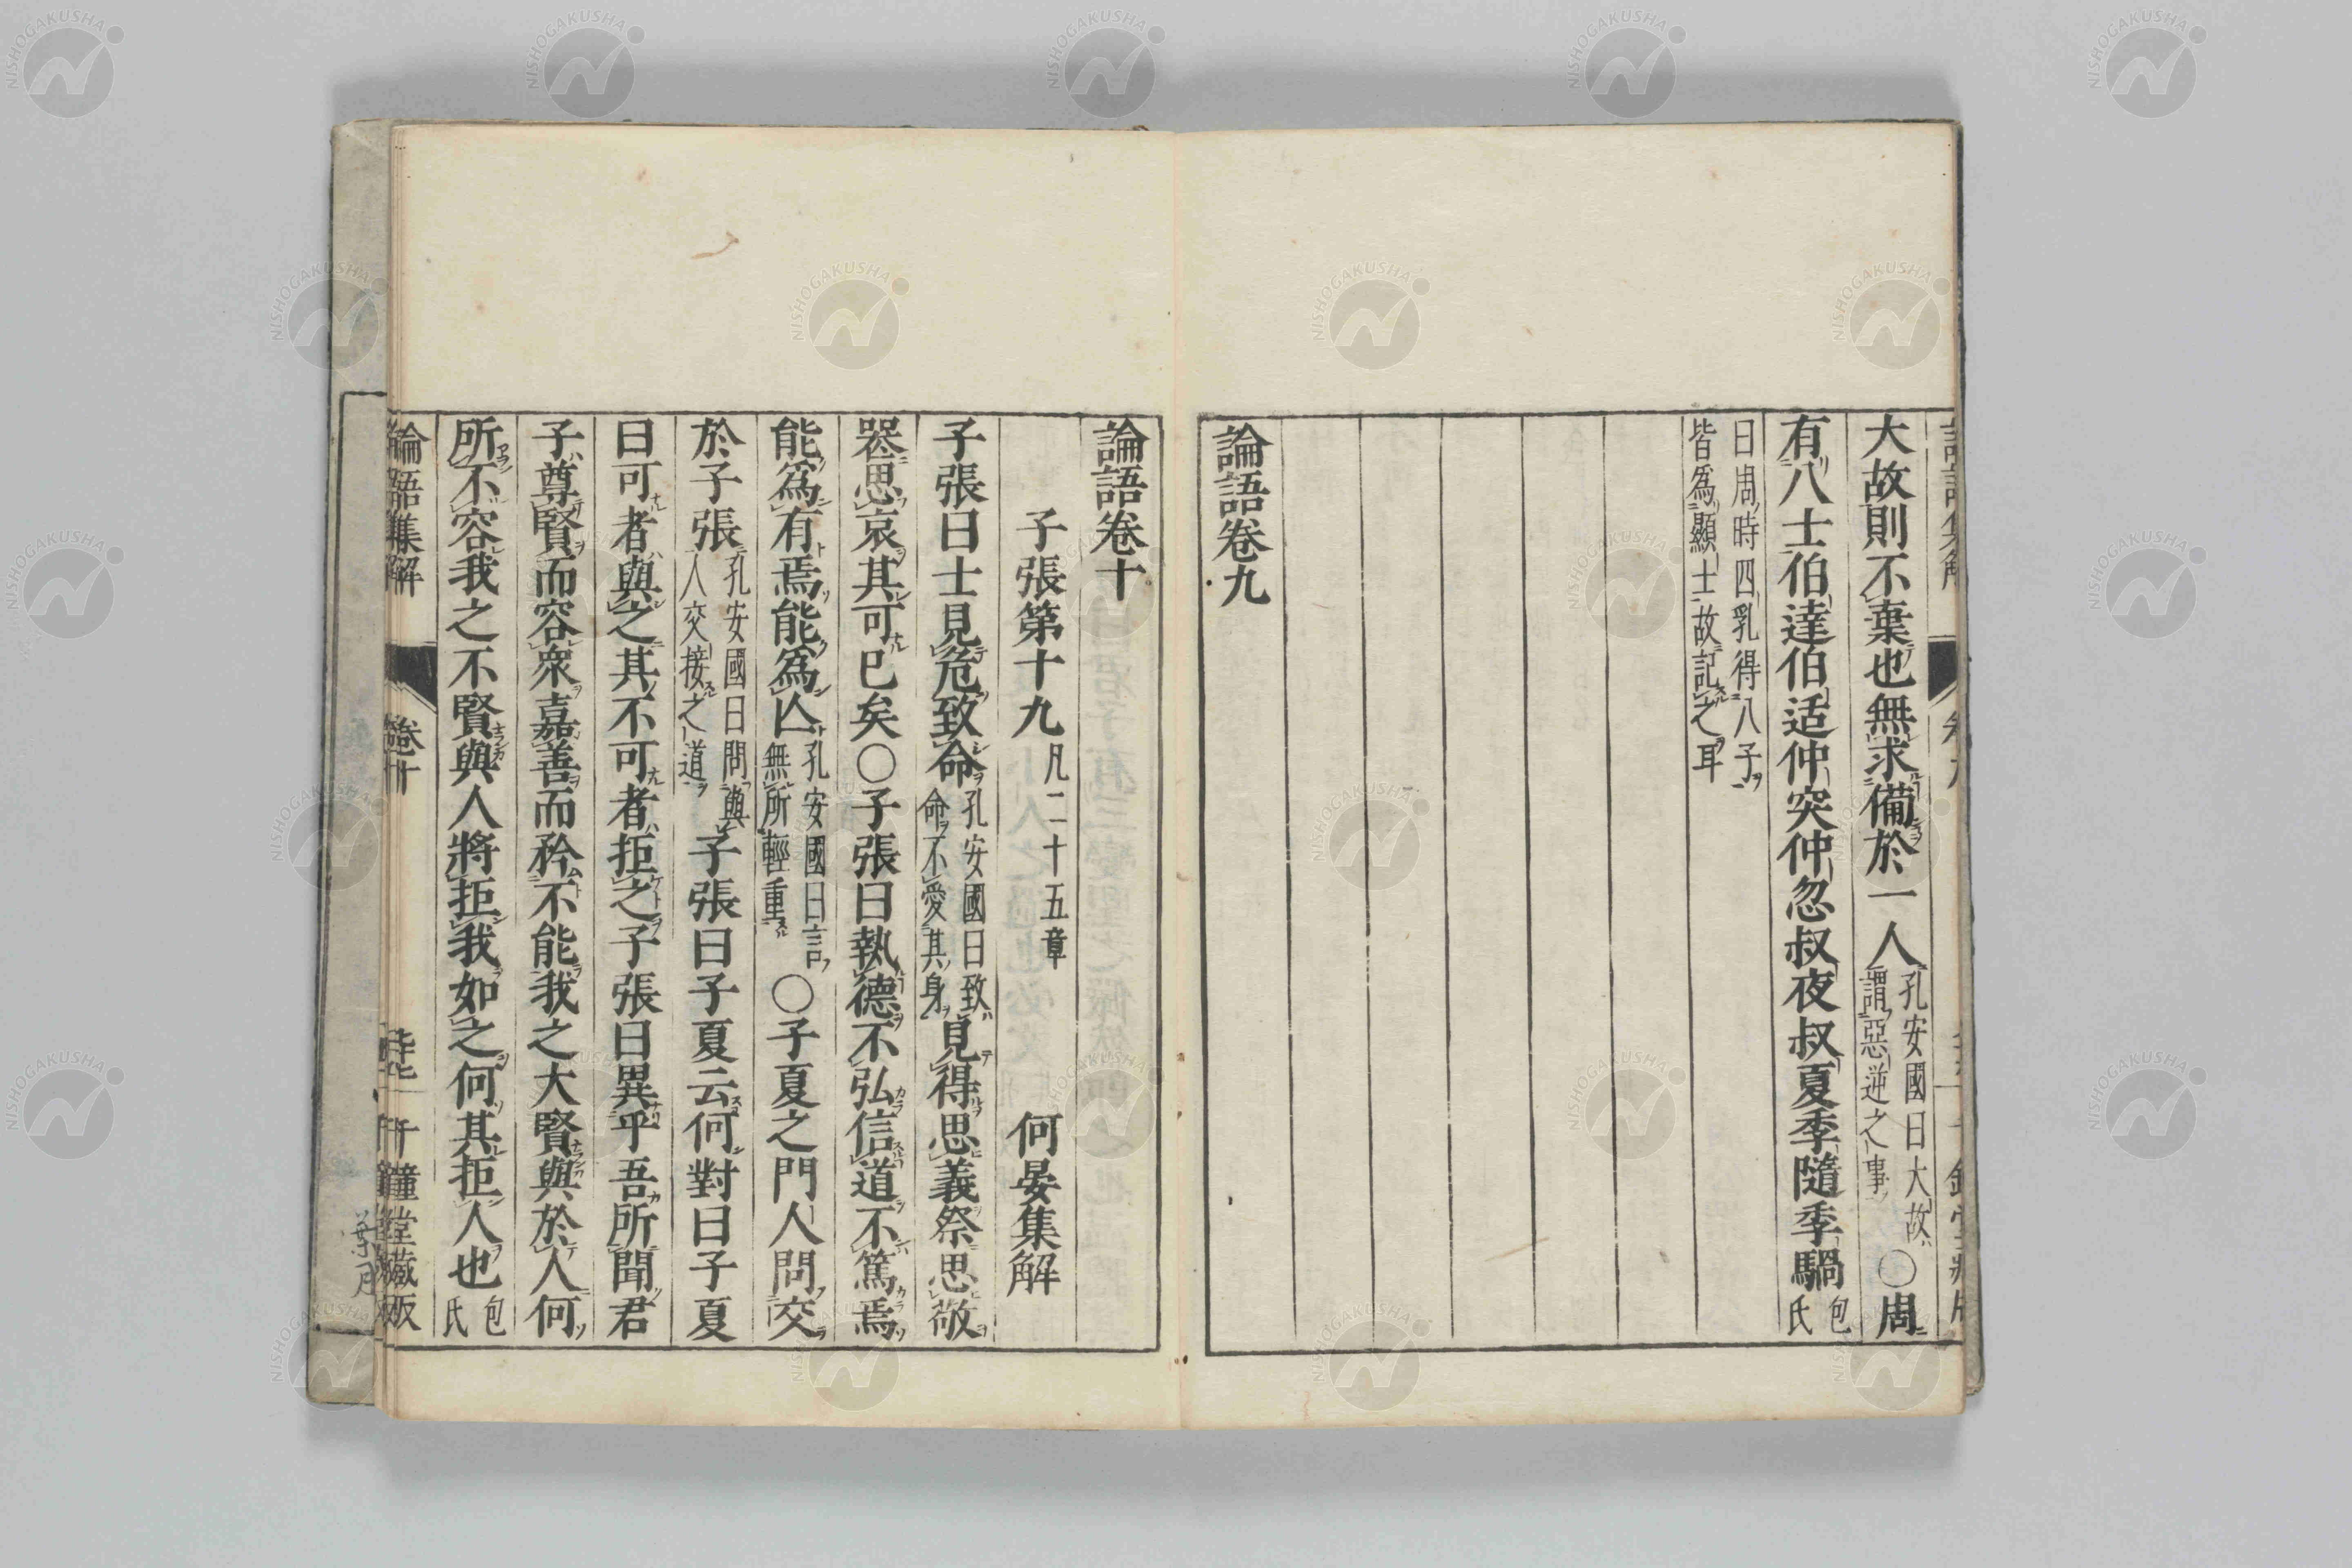 大故則不棄也無求備於一人孔安國曰大故謂惡逆之事○周
有八士伯達伯适仲突仲忽叔夜叔夏季隨季騧包氏
曰周時四乳得八子皆爲顯士故記之耳
論語卷九
論語卷十
子張第十九凡二十五章 何晏集解
子張曰士見危致命孔安國曰致命不愛其身見得思義祭思敬
䘮思哀其可已矣○子張曰執德不弘信道不篤焉
能爲有焉能爲亾孔安國曰言無所輕重○子夏之門人問交
於子張孔安國曰問與人交接之道子張曰子夏云何對曰子夏
曰可者與之其不可者拒之子張曰異乎吾所聞君
子尊賢而容衆嘉善而矜不能我之大賢與於人何
所不容我之不賢與人將拒我如之何其拒人也包氏
論語集解 卷十 千鍾堂藏版
NISHOGAKUSHA